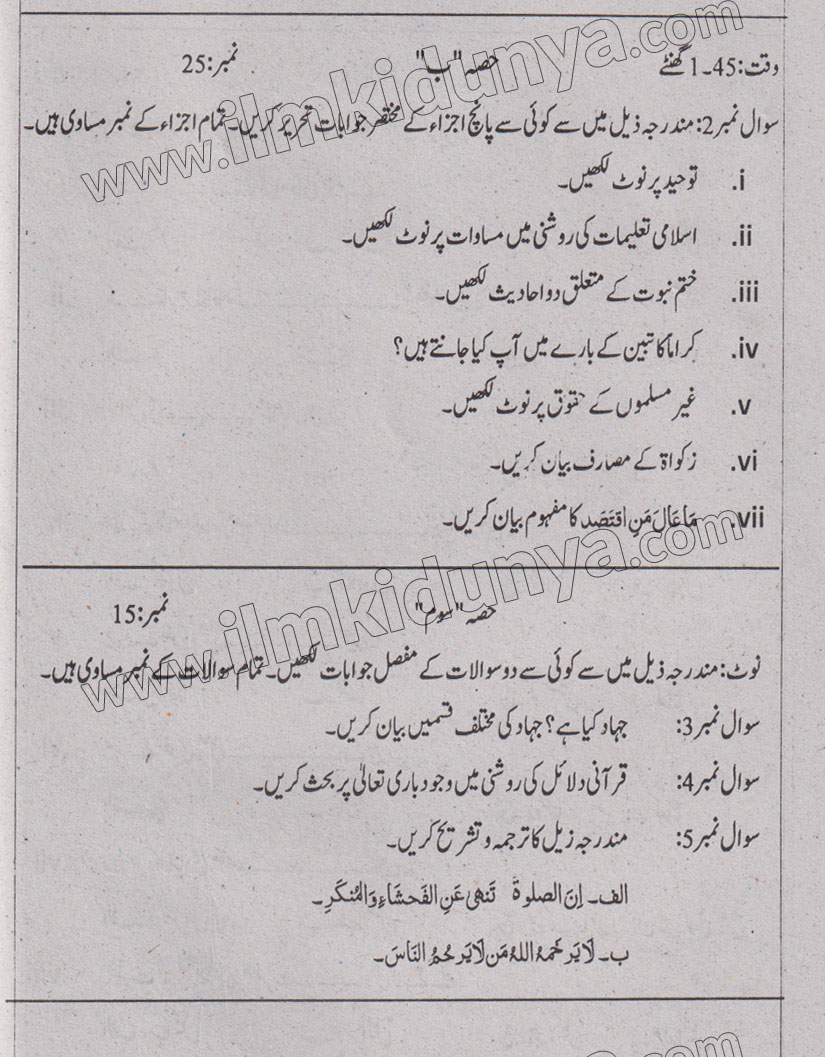 وقت: 45۔1 گھنٹے حصہ "ب" نمبر: 25
سوال نمبر 2: مندرجہ ذیل میں سے کوئی سے پانچ اجزاء کے مختصر جوابات تحریر کریں۔ تمام اجزاء کے نمبر مساوی ہیں۔
i. توحید پر نوٹ لکھیں۔
ii. اسلامی تعلیمات کی روشنی میں مساوات پر نوٹ لکھیں۔
iii. ختم نبوت کے متعلق دو احادیث لکھیں۔
iv. کراماً کاتبین کے بارے میں آپ کیا جانتے ہیں؟
v. غیر مسلموں کے حقوق پر نوٹ لکھیں۔
vi. زکواۃ کے مصارف بیان کریں۔
vii. مَا عَالَ مَنِ اقتَصَد کا مفہوم بیان کریں۔
حصہ "سوم" نمبر: 15
نوٹ: مندرجہ ذیل میں سے کوئی سے دو سوالات کے مفصل جوابات لکھیں۔ تمام سوالات کے نمبر مساوی ہیں۔
سوال نمبر 3: جہاد کیا ہے؟ جہاد کی مختلف قسمیں بیان کریں۔
سوال نمبر 4: قرآنی دلائل کی روشنی میں وجود باری تعالیٰ پر بحث کریں۔
سوال نمبر 5: مندرجہ زیل کا ترجمہ و تشریح کریں۔
الف۔ اِنَ الصلوۃَ تَنھیٰ عَنِ الفَحشَاءِ وَالمُنکَرِ۔
ب۔ لَا یَرحَمہُ اللہُ مَن لَا یَرحُمُ النَاسَ۔
www.ilmkidunya.com
www.ilmkidunya.com